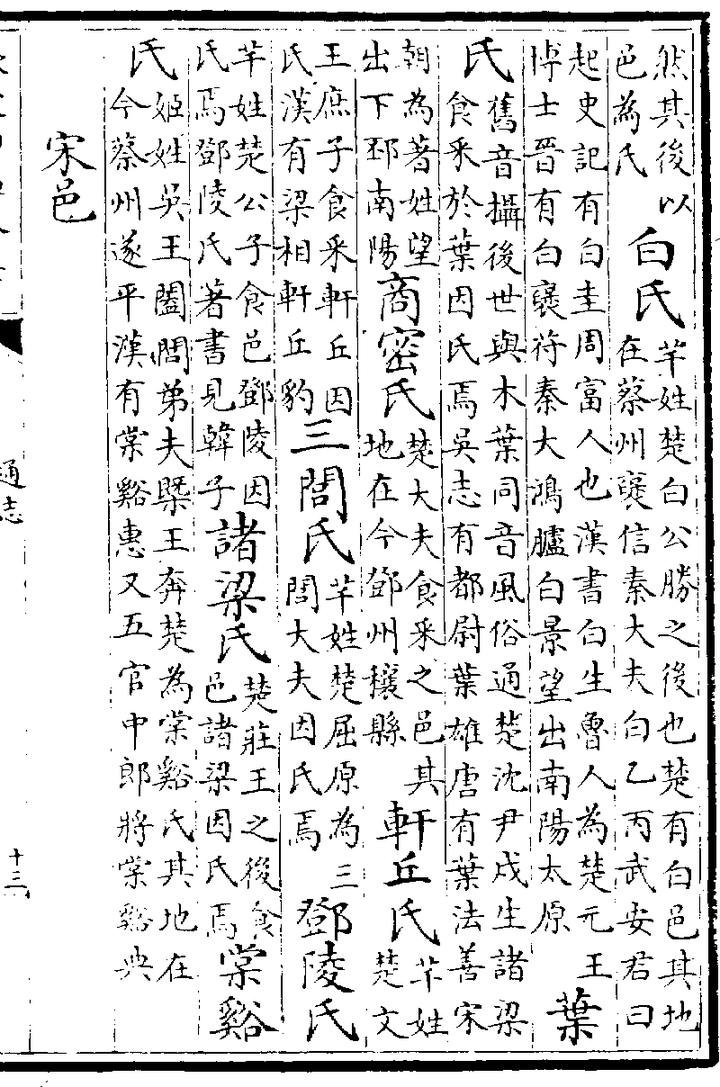 然其後以
邑為氏
白氏
芊姓楚白公勝之後也楚有白邑其地
在蔡州襃信秦大夫白乙丙武安君曰
起史記有白圭周富人也漢書白生魯人為楚元王
博士晉有白襃苻秦大鴻臚白景望出南陽太原
葉
氏
舊音攝後世與木葉同音風俗通楚沈尹戍生諸梁
食采於葉因氏焉吳志有都尉葉雄唐有葉法善宋
朝為著姓望
出下邳南陽
商密氏
楚大夫食采之邑其
地在今鄧州穰縣
軒丘氏
芊姓
楚文
王庶子食采軒丘因
氏漢有梁相軒丘豹
三閭氏
芊姓楚屈原為三
閭大夫因氏焉
鄧陵氏
芊姓楚公子食邑鄧陵因
氏焉鄧陵氏著書見韓子
諸梁氏
楚莊王之後食
邑諸梁因氏焉
棠谿
氏
姬姓吳王闔閭弟夫槩王奔楚為棠谿氏其地在
今蔡州遂平漢有棠谿惠又五官中郎將棠谿典
宋邑
通志
十三